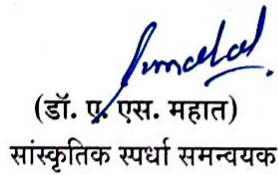 (डॉ. ए. एस. महात)
सांस्कृतिक स्पर्धा समन्वयक